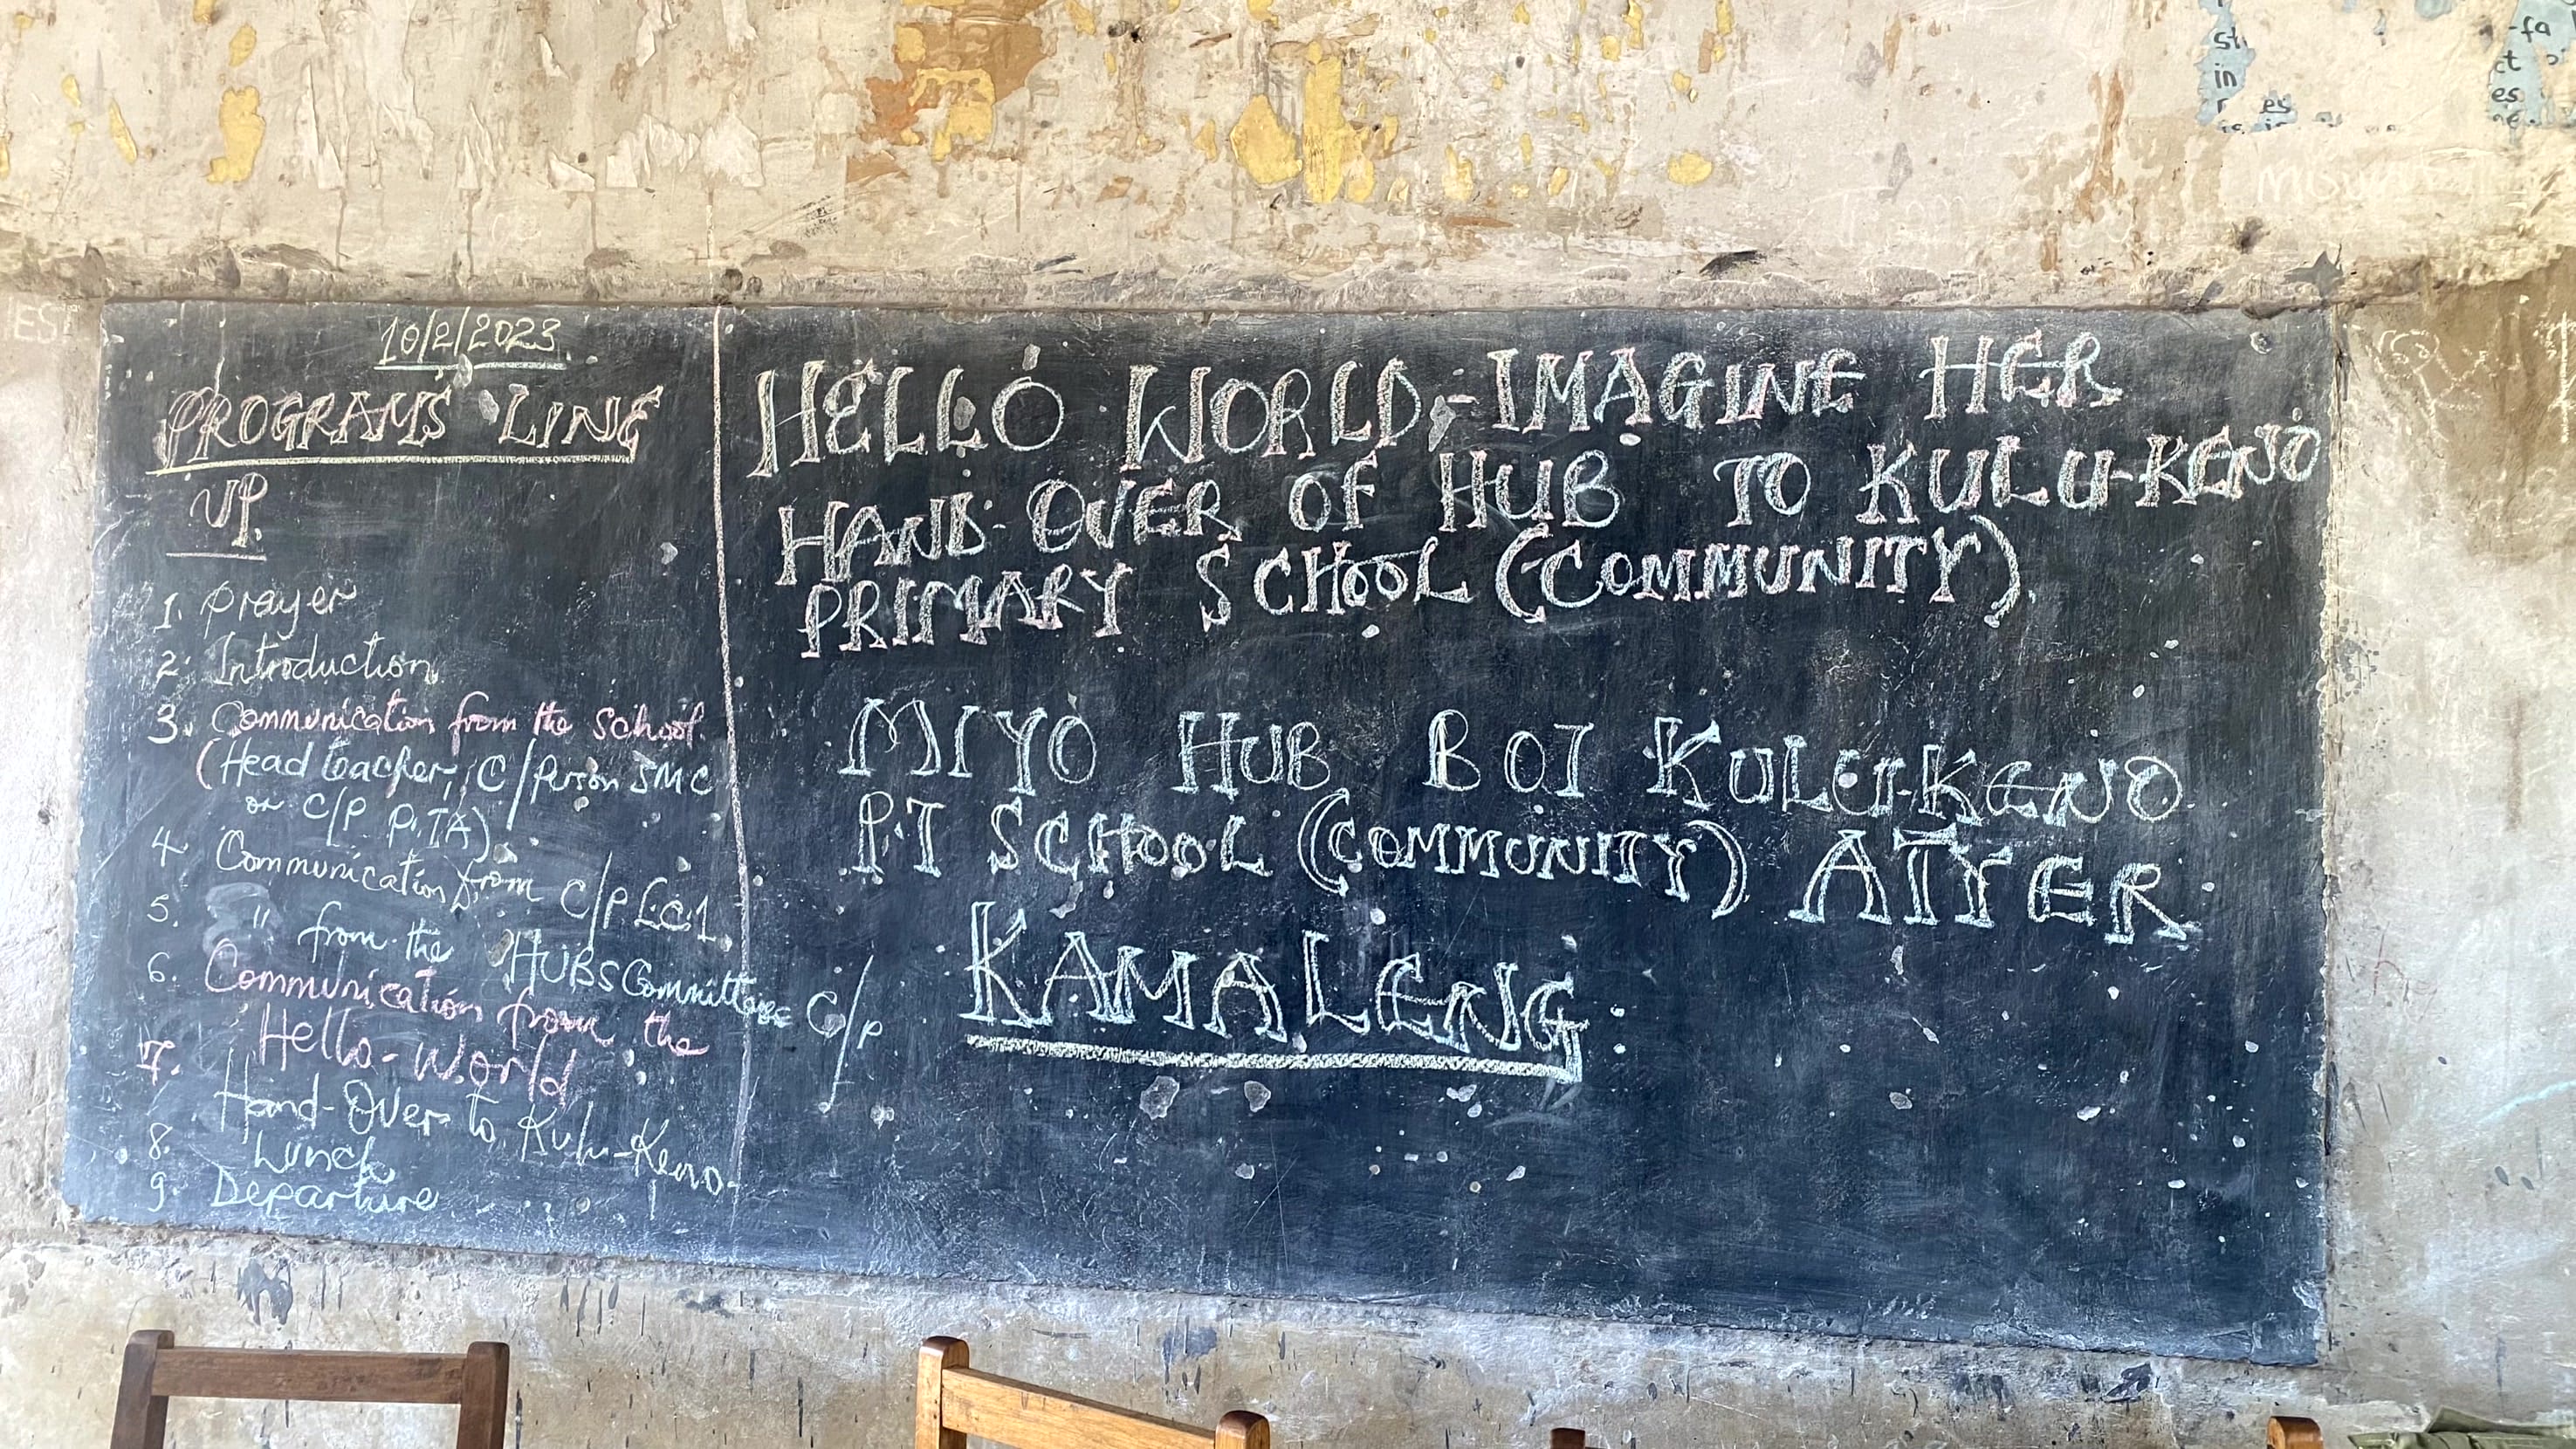 10/2/2023
PROGRAMS LINE
UP.
1. Prayer
2. Introduction
3. Communication from the School.
(Head teacher, C/Person SMC
or C/P P.TA)
4. Communication from C/P LC1
5. " from the HUBS Committee C/P
6. Communication from the
Hello-World
7. Hand-Over to Kulu-Keno.
8. Lunch
9. Departure
HELLO WORLD,-IMAGINE HER
HAND-OVER OF HUB TO KULU-KENO
PRIMARY SCHOOL (COMMUNITY)
MIYO HUB BOT KULU-KENO
P.T SCHOOL (COMMUNITY) ATYER
KAMALENG
ES
st
in
es
-fa
ct
es